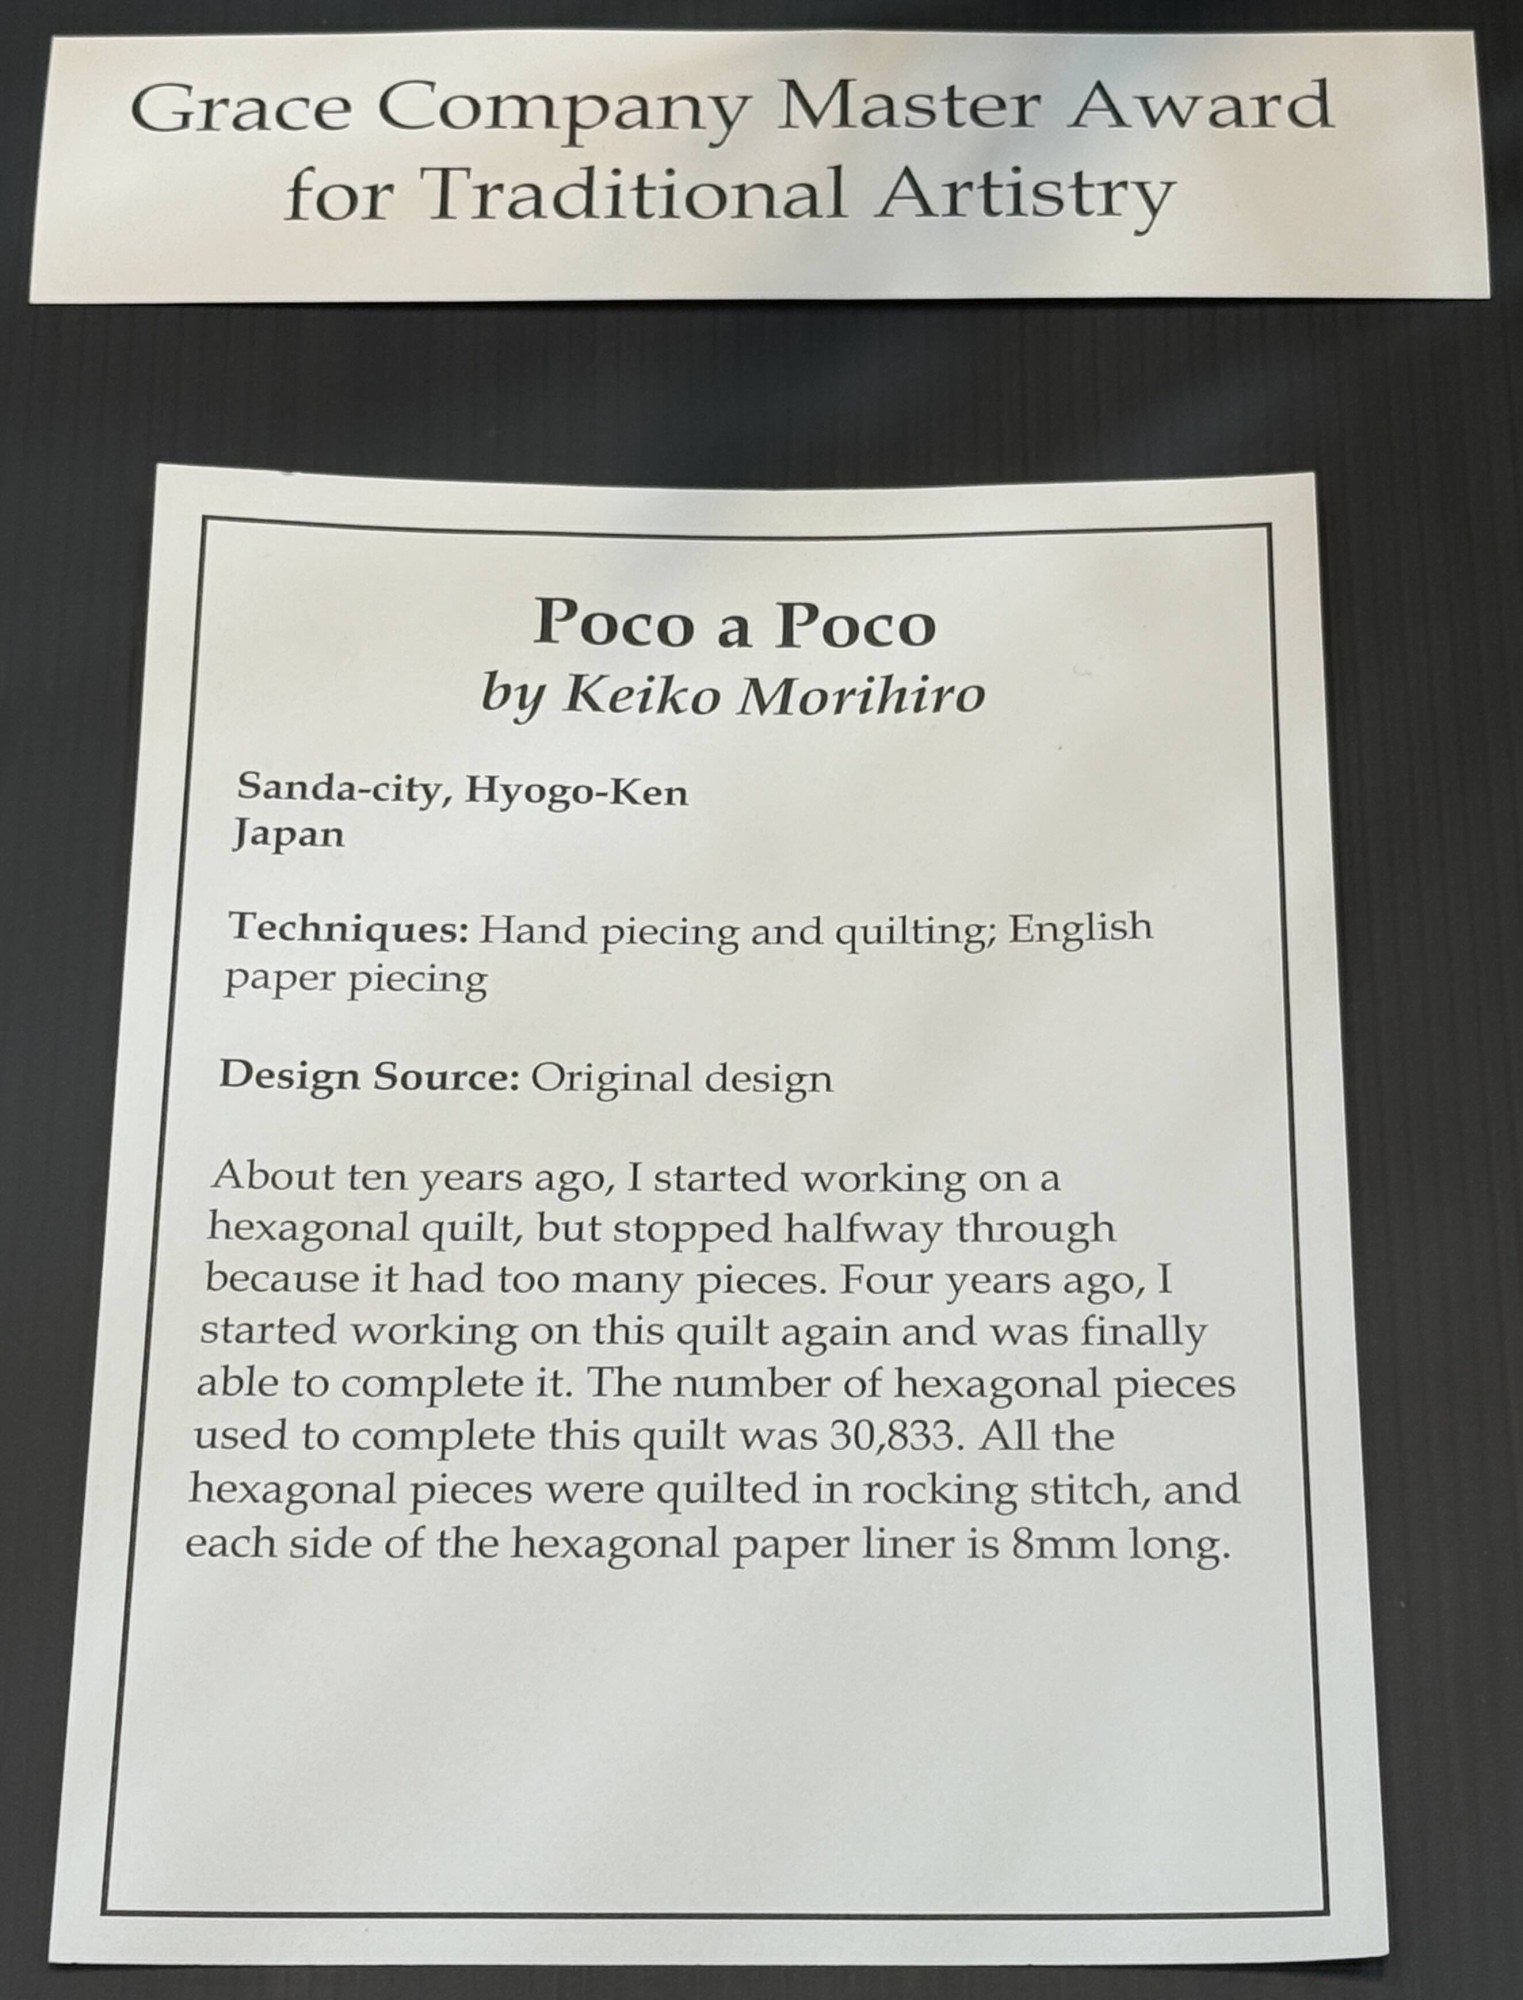 Grace Company Master Award
for Traditional Artistry
Poco a Poco
by Keiko Morihiro
Sanda-city, Hyogo-Ken
Japan
Techniques: Hand piecing and quilting; English
paper piecing
Design Source: Original design
About ten years ago, I started working on a
hexagonal quilt, but stopped halfway through
because it had too many pieces. Four years ago, I
started working on this quilt again and was finally
able to complete it. The number of hexagonal pieces
used to complete this quilt was 30,833. All the
hexagonal pieces were quilted in rocking stitch, and
each side of the hexagonal paper liner is 8mm long.